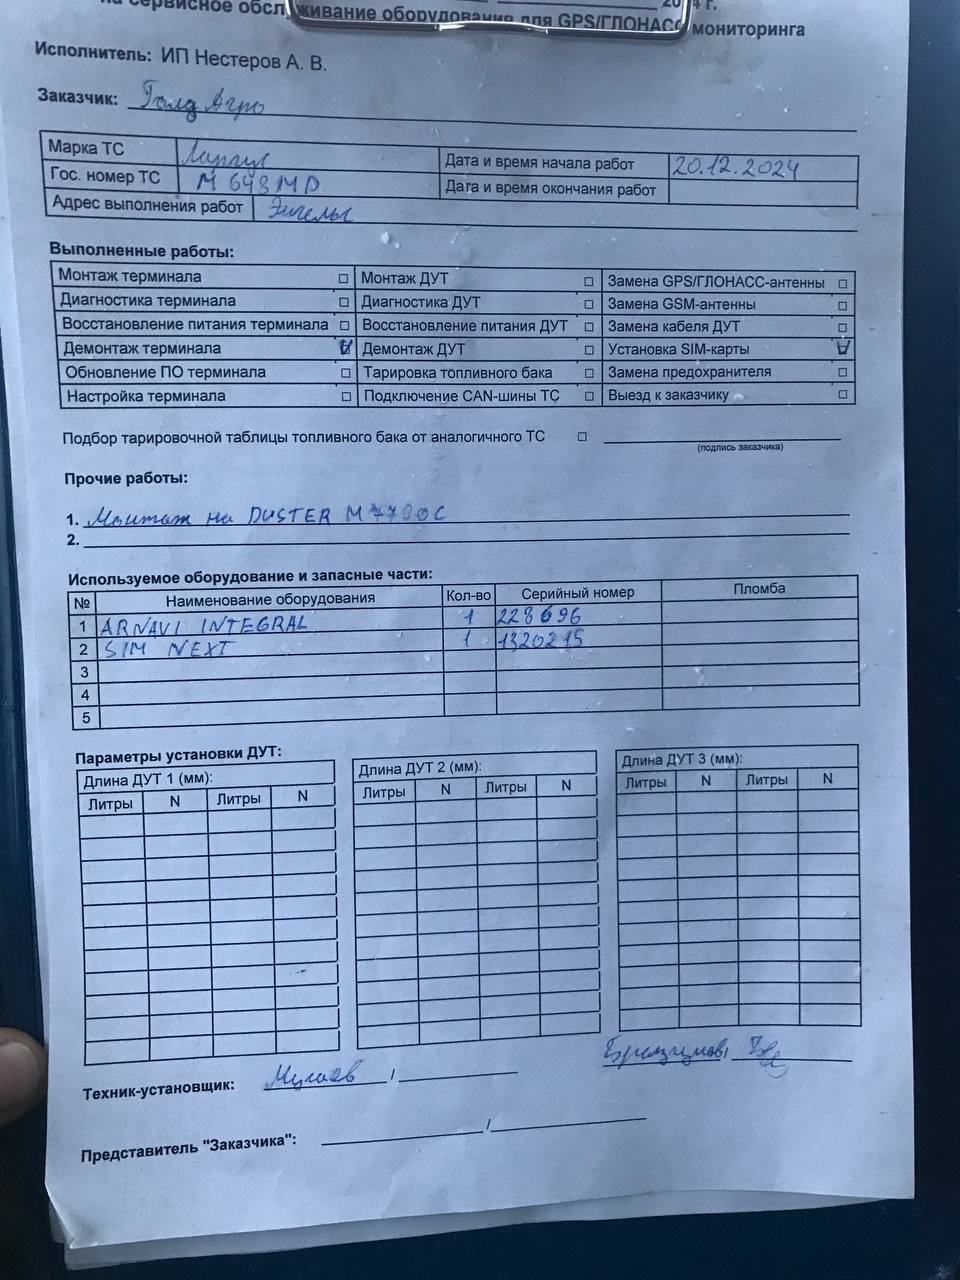 на сервисное обслуживание оборудования для GPS/ГЛОНАСС мониторинга
Исполнитель: ИП Нестеров А. В.
Заказчик: Голд Агро
Марка ТС Ларгус Дата и время начала работ 20.12.2024
Гос. номер ТС М 648 МР Дата и время окончания работ
Адрес выполнения работ Энгельс
Выполненные работы:
Монтаж терминала □ Монтаж ДУТ □ Замена GPS/ГЛОНАСС-антенны □
Диагностика терминала □ Диагностика ДУТ □ Замена GSM-антенны □
Восстановление питания терминала □ Восстановление питания ДУТ □ Замена кабеля ДУТ □
Демонтаж терминала ☑ Демонтаж ДУТ □ Установка SIM-карты ☑
Обновление ПО терминала □ Тарировка топливного бака □ Замена предохранителя □
Настройка терминала □ Подключение CAN-шины ТС □ Выезд к заказчику □
Подбор тарировочной таблицы топливного бака от аналогичного ТС □
(подпись заказчика)
Прочие работы:
1. Монтаж на DUSTER
2.
Используемое оборудование и запасные части:
№ Наименование оборудования Кол-во Серийный номер Пломба
1 ARNAVI INTEGRAL 1 228696
2 SIM NEXT 1 1320215
3
4
5
Параметры установки ДУТ:
Длина ДУТ 1 (мм): Длина ДУТ 2 (мм): Длина ДУТ 3 (мм):
Литры N Литры N Литры N Литры N Литры N Литры N
Техник-установщик: /
Представитель "Заказчика": /